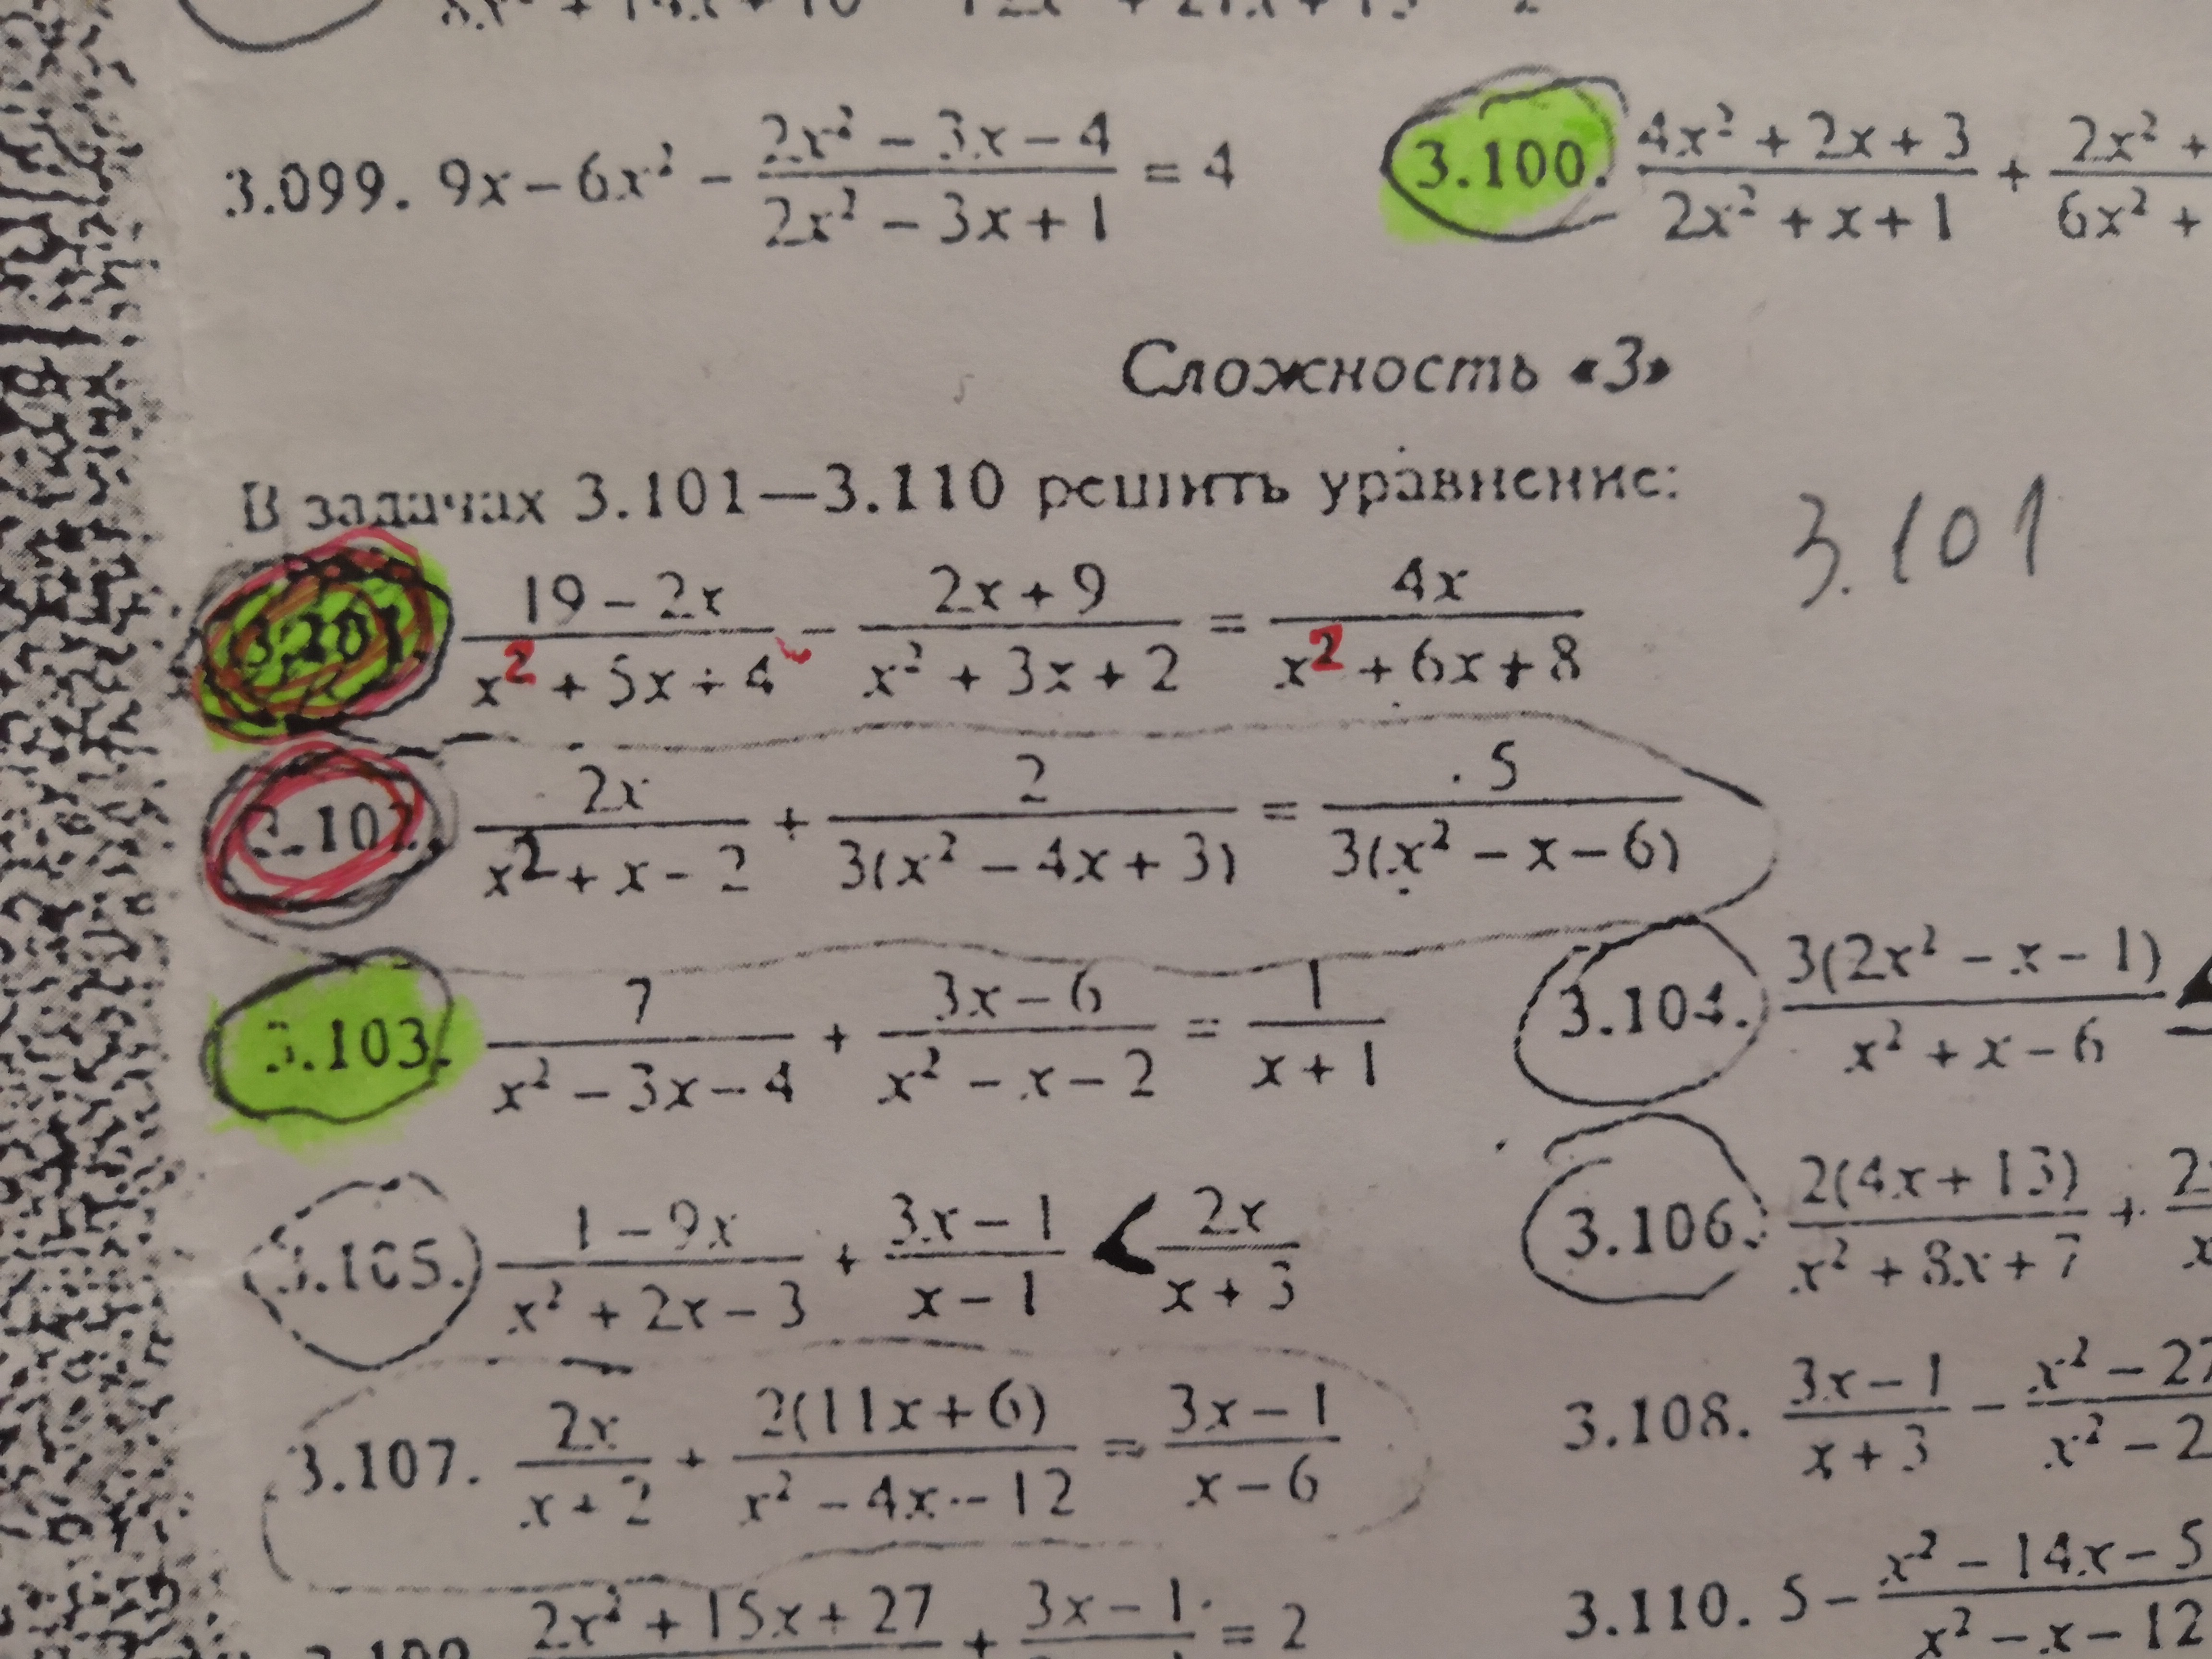 3.099. 9x − 6x² − (2x² − 3x − 4)/(2x² − 3x + 1) = 4
3.100. (4x² + 2x + 3)/(2x² + x + 1) + (2x² +)/(6x² +)
Сложность «3»
В задачах 3.101—3.110 решить уравнение:
3.101
3.101. (19 − 2x)/(x² + 5x + 4) − (2x + 9)/(x² + 3x + 2) = (4x)/(x² + 6x + 8)
3.102. (2x)/(x² + x − 2) + 2/(3(x² − 4x + 3)) = 5/(3(x² − x − 6))
3.103. 7/(x² − 3x − 4) + (3x − 6)/(x² − x − 2) = 1/(x + 1)
3.104. 3(2x² − x − 1)/(x² + x − 6)
3.105. (1 − 9x)/(x² + 2x − 3) + (3x − 1)/(x − 1) < (2x)/(x + 3)
3.106. 2(4x + 13)/(x² + 8x + 7) +
3.107. (2x)/(x + 2) + 2(11x + 6)/(x² − 4x − 12) = (3x − 1)/(x − 6)
3.108. (3x − 1)/(x + 3) − (x² − 27)/(x² − 2
2x² + 15x + 27 + 3x − 1 = 2
3.110. 5 − (x² − 14x − 5)/(x² − x − 12)